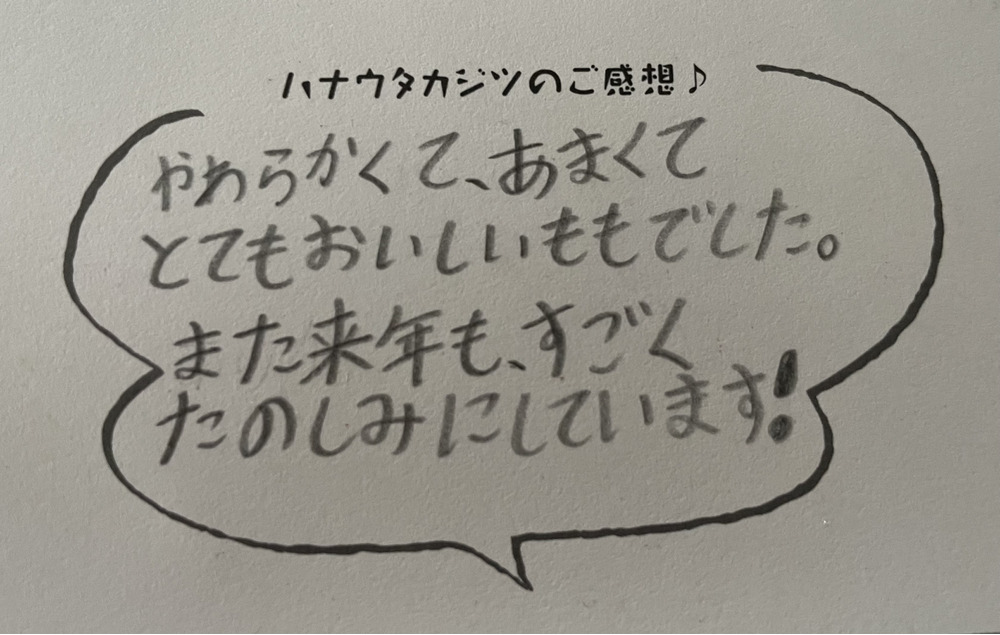 ハナウタカジツのご感想♪
やわらかくて、あまくて
とてもおいしいももでした。
また来年も、すごく
たのしみにしています!